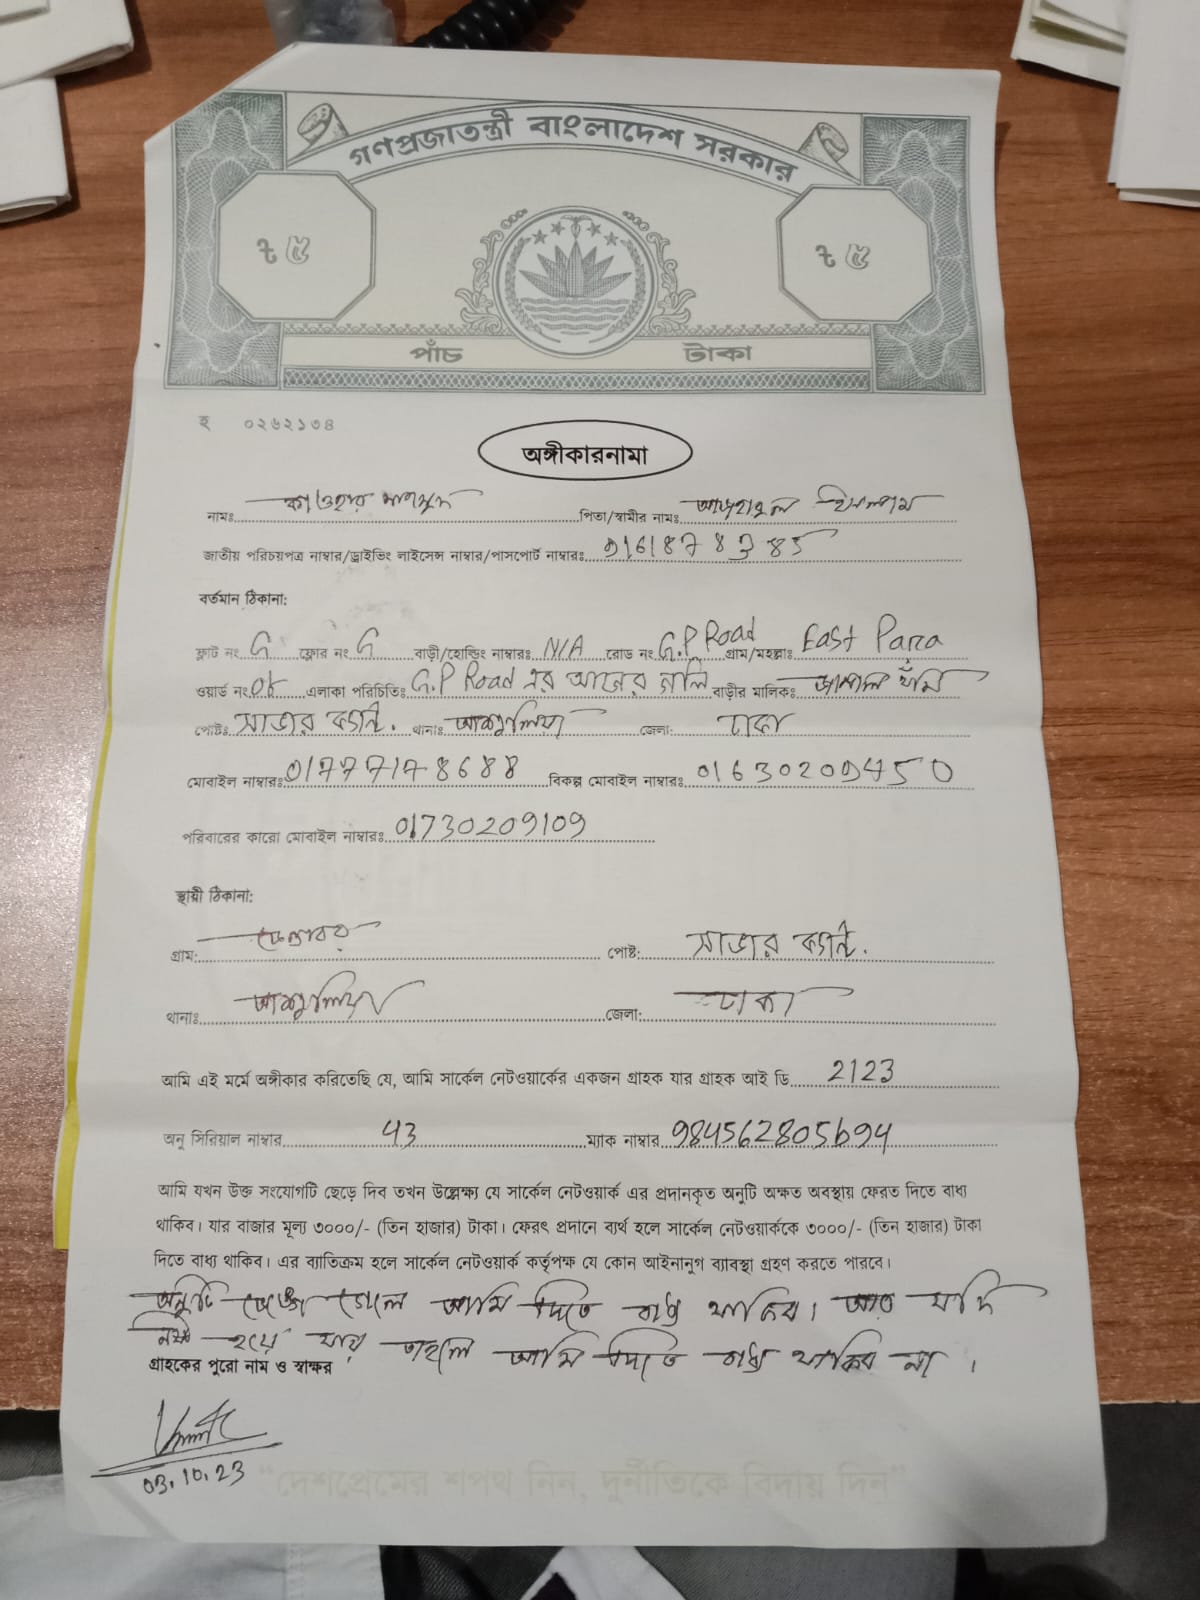 গণপ্রজাতন্ত্রী বাংলাদেশ সরকার
৳ ৫ ৳ ৫
পাঁচ টাকা
হ ০২৬২১৩৪
অঙ্গীকারনামা
নামঃ কাওছার মাহমুদ পিতা/স্বামীর নামঃ আজহারুল ইসলাম
জাতীয় পরিচয়পত্র নাম্বার/ড্রাইভিং লাইসেন্স নাম্বার/পাসপোর্ট নাম্বারঃ
বর্তমান ঠিকানা:
ফ্লাট নং G ফ্লোর নং G বাড়ী/হোল্ডিং নাম্বারঃ N/A রোড নং G.P Road গ্রাম/মহল্লাঃ East Para
ওয়ার্ড নং 08 এলাকা পরিচিতিঃ G.P Road এর আগের গলি বাড়ীর মালিকঃ জালাল খাঁন
পোষ্টঃ সাভার ক্যান্ট. থানাঃ আশুলিয়া জেলা: ঢাকা
মোবাইল নাম্বারঃ 01777178688 বিকল্প মোবাইল নাম্বারঃ 01630209450
পরিবারের কারো মোবাইল নাম্বারঃ 01730209109
স্থায়ী ঠিকানা:
গ্রাম: পোষ্ট: সাভার ক্যান্ট.
থানাঃ আশুলিয়া জেলা: ঢাকা
আমি এই মর্মে অঙ্গীকার করিতেছি যে, আমি সার্কেল নেটওয়ার্কের একজন গ্রাহক যার গ্রাহক আই ডি 2123
অনু সিরিয়াল নাম্বার 43 ম্যাক নাম্বার 984562805694
আমি যখন উক্ত সংযোগটি ছেড়ে দিব তখন উল্লেক্ষ্য যে সার্কেল নেটওয়ার্ক এর প্রদানকৃত অনুটি অক্ষত অবস্থায় ফেরত দিতে বাধ্য
থাকিব। যার বাজার মূল্য ৩০০০/- (তিন হাজার) টাকা। ফেরৎ প্রদানে ব্যর্থ হলে সার্কেল নেটওয়ার্ককে ৩০০০/- (তিন হাজার) টাকা
দিতে বাধ্য থাকিব। এর ব্যাতিক্রম হলে সার্কেল নেটওয়ার্ক কর্তৃপক্ষ যে কোন আইনানুগ ব্যাবস্থা গ্রহণ করতে পারবে।
অনুটি ভেঙ্গে গেলে আমি দিতে বাধ্য থাকিব। আর যদি
নষ্ট হয়ে যায় তাহলে আমি দিতে বাধ্য থাকিব না।
গ্রাহকের পুরো নাম ও স্বাক্ষর
03.10.23
"দেশপ্রেমের শপথ নিন, দুর্নীতিকে বিদায় দিন"